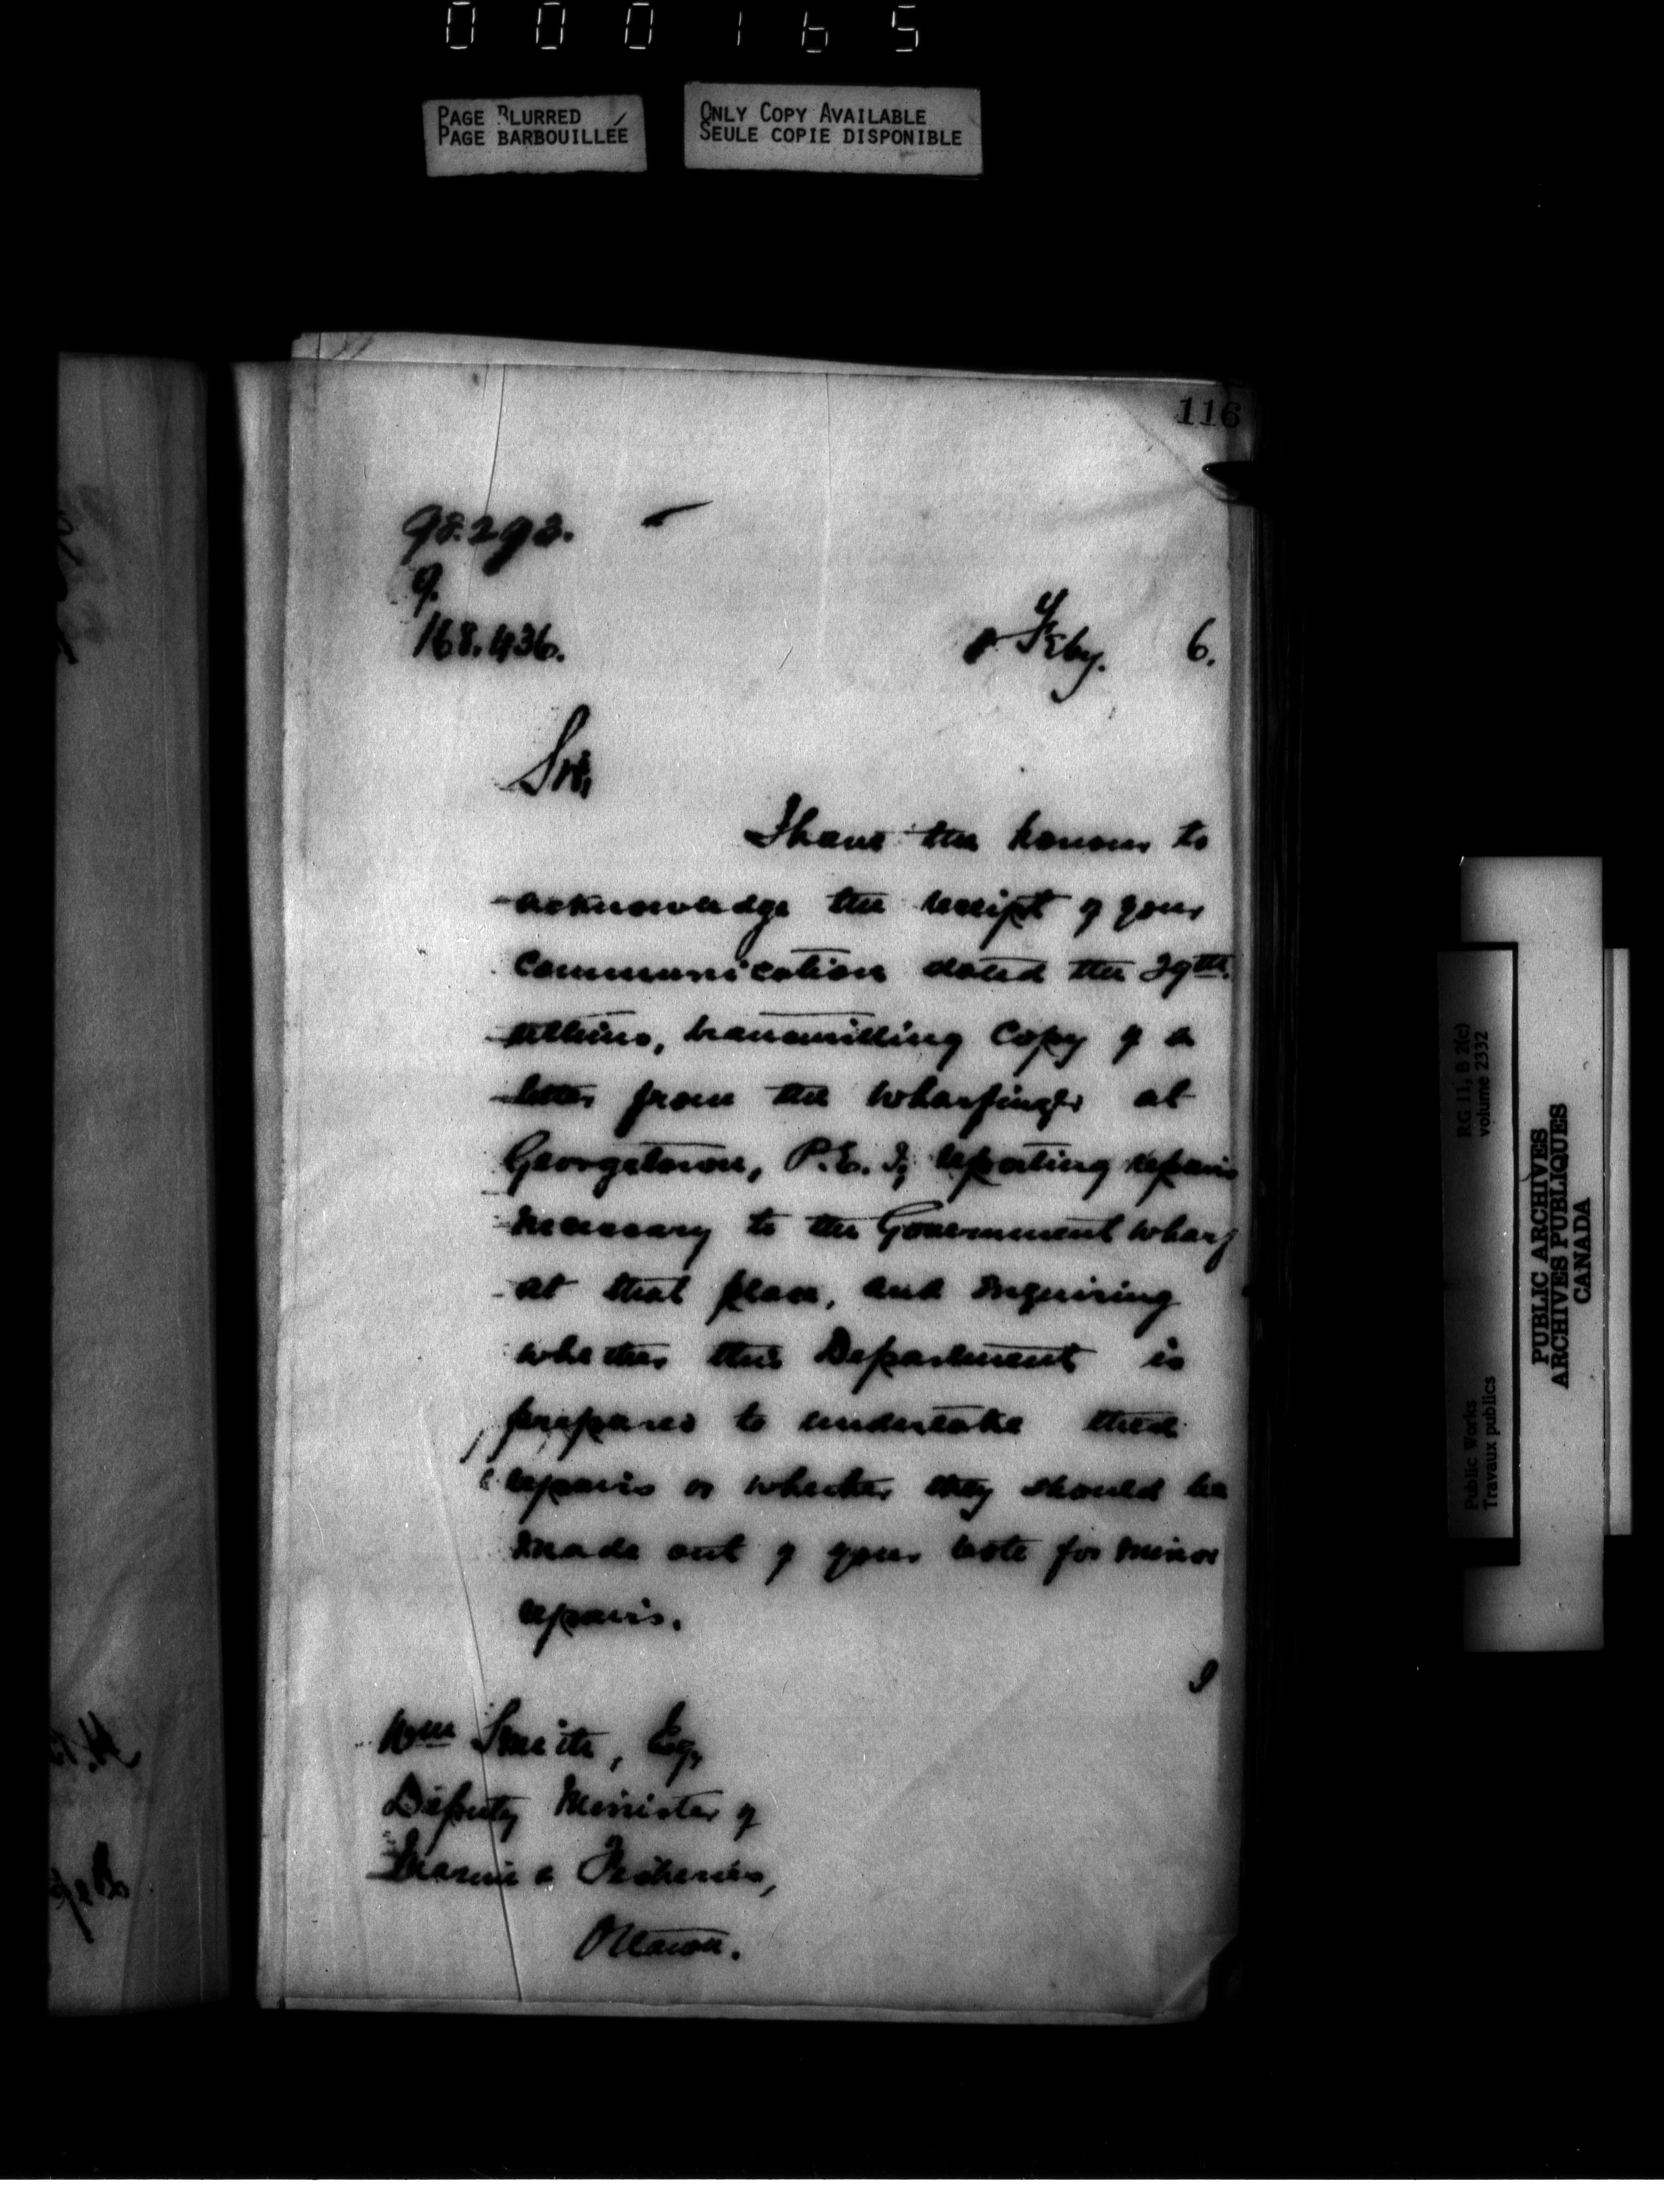 000165
PAGE BLURRED
PAGE BARBOUILLÉE
ONLY COPY AVAILABLE
SEULE COPIE DISPONIBLE
116
98.293.
9.
168.436.
Feby. 6.
Sir,
I have the honour to
acknowledge the receipt of your
communication dated the 29th.
ultimo, transmitting copy of a
letter from the wharfinger at
Georgetown, P.E.I; reporting repairs
necessary to the Government wharf
at that place, and inquiring
whether this Department is
prepared to undertake these
repairs or whether they should be
made out of your vote for minor
repairs.
I
Wm Smith, Esq,
Deputy Minister of
Marine & Fisheries,
Ottawa.
RG 11, B 2(c)
volume 2332
Public Works
Travaux publics
PUBLIC ARCHIVES
ARCHIVES PUBLIQUES
CANADA